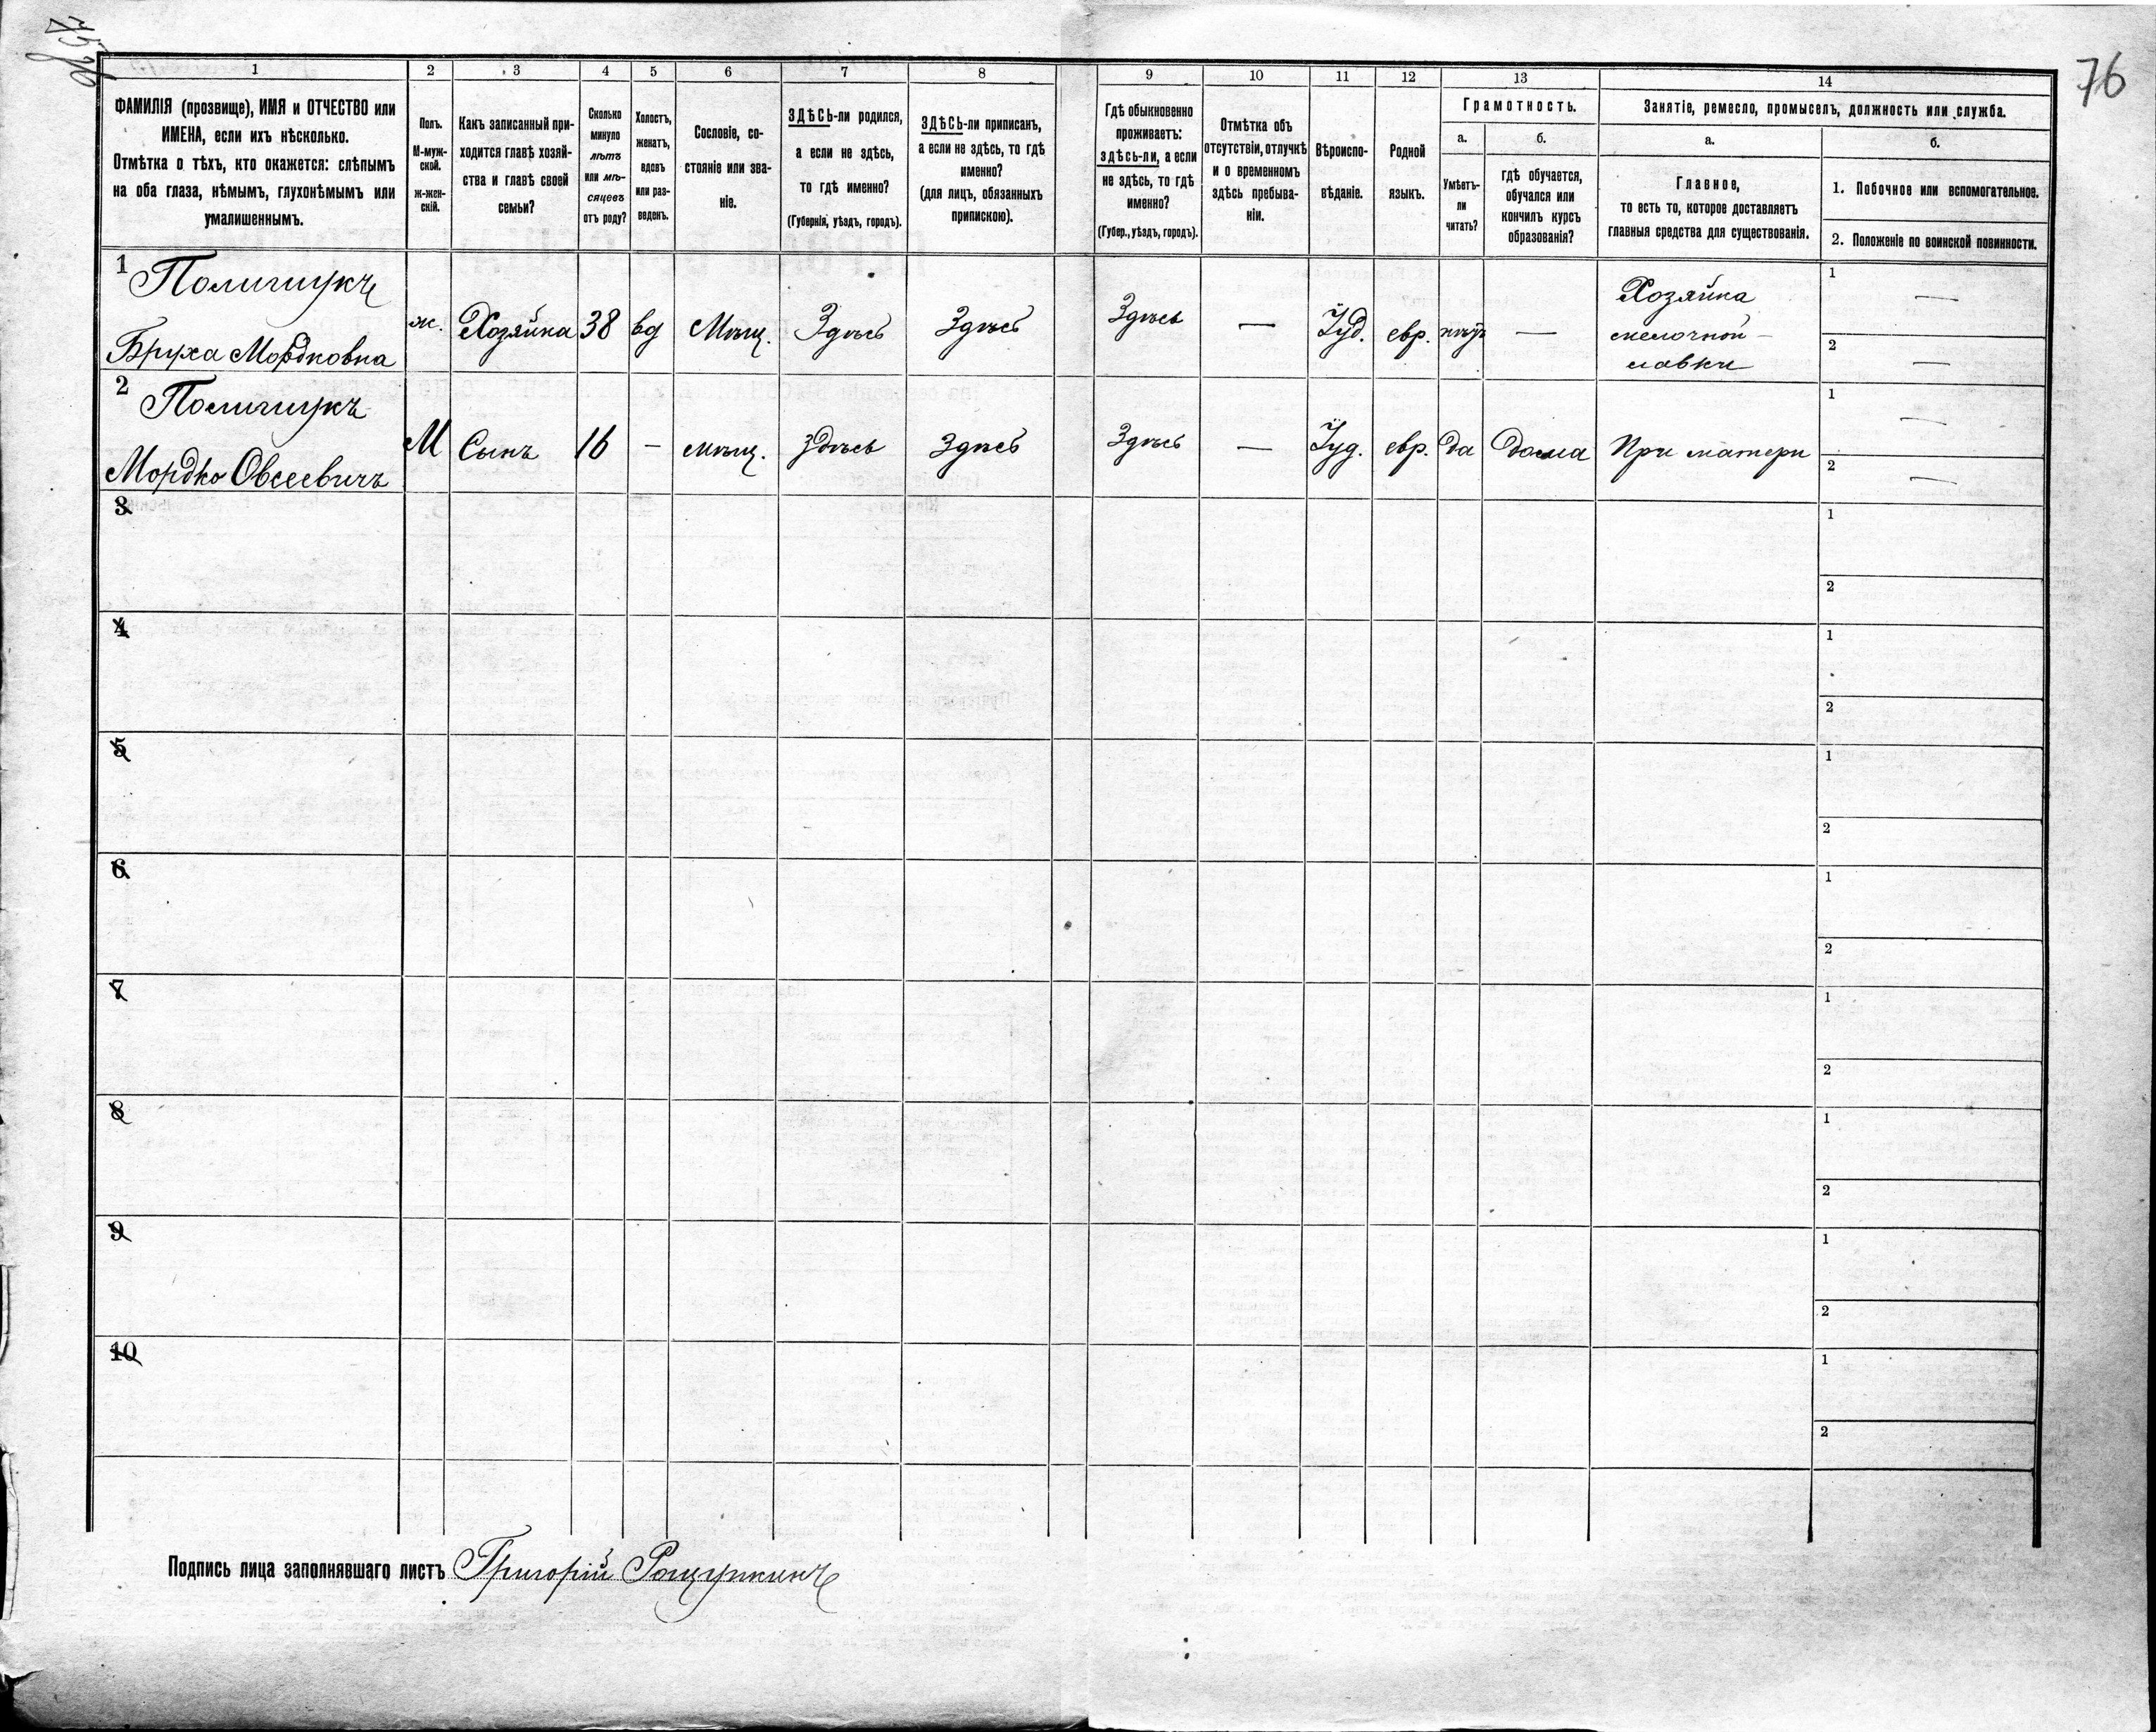 76
1
2
3
4
5
6
7
8
9
10
11
12
13
14
ФАМИЛІЯ (прозвище), ИМЯ и ОТЧЕСТВО или
ИМЕНА, если ихъ нѣсколько.
Отмѣтка о тѣхъ, кто окажется: слѣпымъ
на оба глаза, нѣмымъ, глухонѣмымъ или
умалишеннымъ.
Полъ.
М-муж-
ской.
ж-жен-
скій.
Какъ записанный при-
ходится главѣ хозяй-
ства и главѣ своей
семьи?
Сколько
минуло
лѣтъ
или мѣ-
сяцевъ
отъ роду?
Холостъ,
женатъ,
вдовъ
или раз-
веденъ.
Сословіе, со-
стояніе или зва-
ніе.
ЗДѢСЬ-ли родился,
а если не здѣсь,
то гдѣ именно?
(Губернія, уѣздъ, городъ).
ЗДѢСЬ-ли приписанъ,
а если не здѣсь, то гдѣ
именно?
(для лицъ, обязанныхъ
припискою).
Гдѣ обыкновенно
проживаетъ:
ЗДѢСЬ-ЛИ, а если
не здѣсь, то гдѣ
именно?
(Губер., уѣздъ, городъ).
Отмѣтка объ
отсутствіи, отлучкѣ
и о временномъ
здѣсь пребыва-
ніи.
Вѣроиспо-
вѣданіе.
Родной
языкъ.
Грамотность.
а.
Умѣетъ-
ли
читать?
б.
гдѣ обучается,
обучался или
кончилъ курсъ
образованія?
Занятіе, ремесло, промыселъ, должность или служба.
а.
Главное,
то есть то, которое доставляетъ
главныя средства для существованія.
б.
1. Побочное или вспомогательное.
2. Положеніе по воинской повинности.
1
Полищукъ
Бруха Мордковна
ж.
Хозяйка
38
вд
Мѣщ.
Здѣсь
Здѣсь
Здѣсь
—
Іуд.
евр.
нѣтъ
—
Хозяйка
мелочной
лавки
1 —
2 —
2
Полищукъ
Мордко Овсеевичъ
М
Сынъ
16
—
мѣщ.
здѣсь
Здѣсь
Здѣсь
—
Іуд.
евр.
да
дома
При матери
1 —
2 —
3
1
2
4
1
2
5
1
2
6
1
2
7
1
2
8
1
2
9
1
2
10
1
2
Подпись лица заполнявшаго листъ Григорій